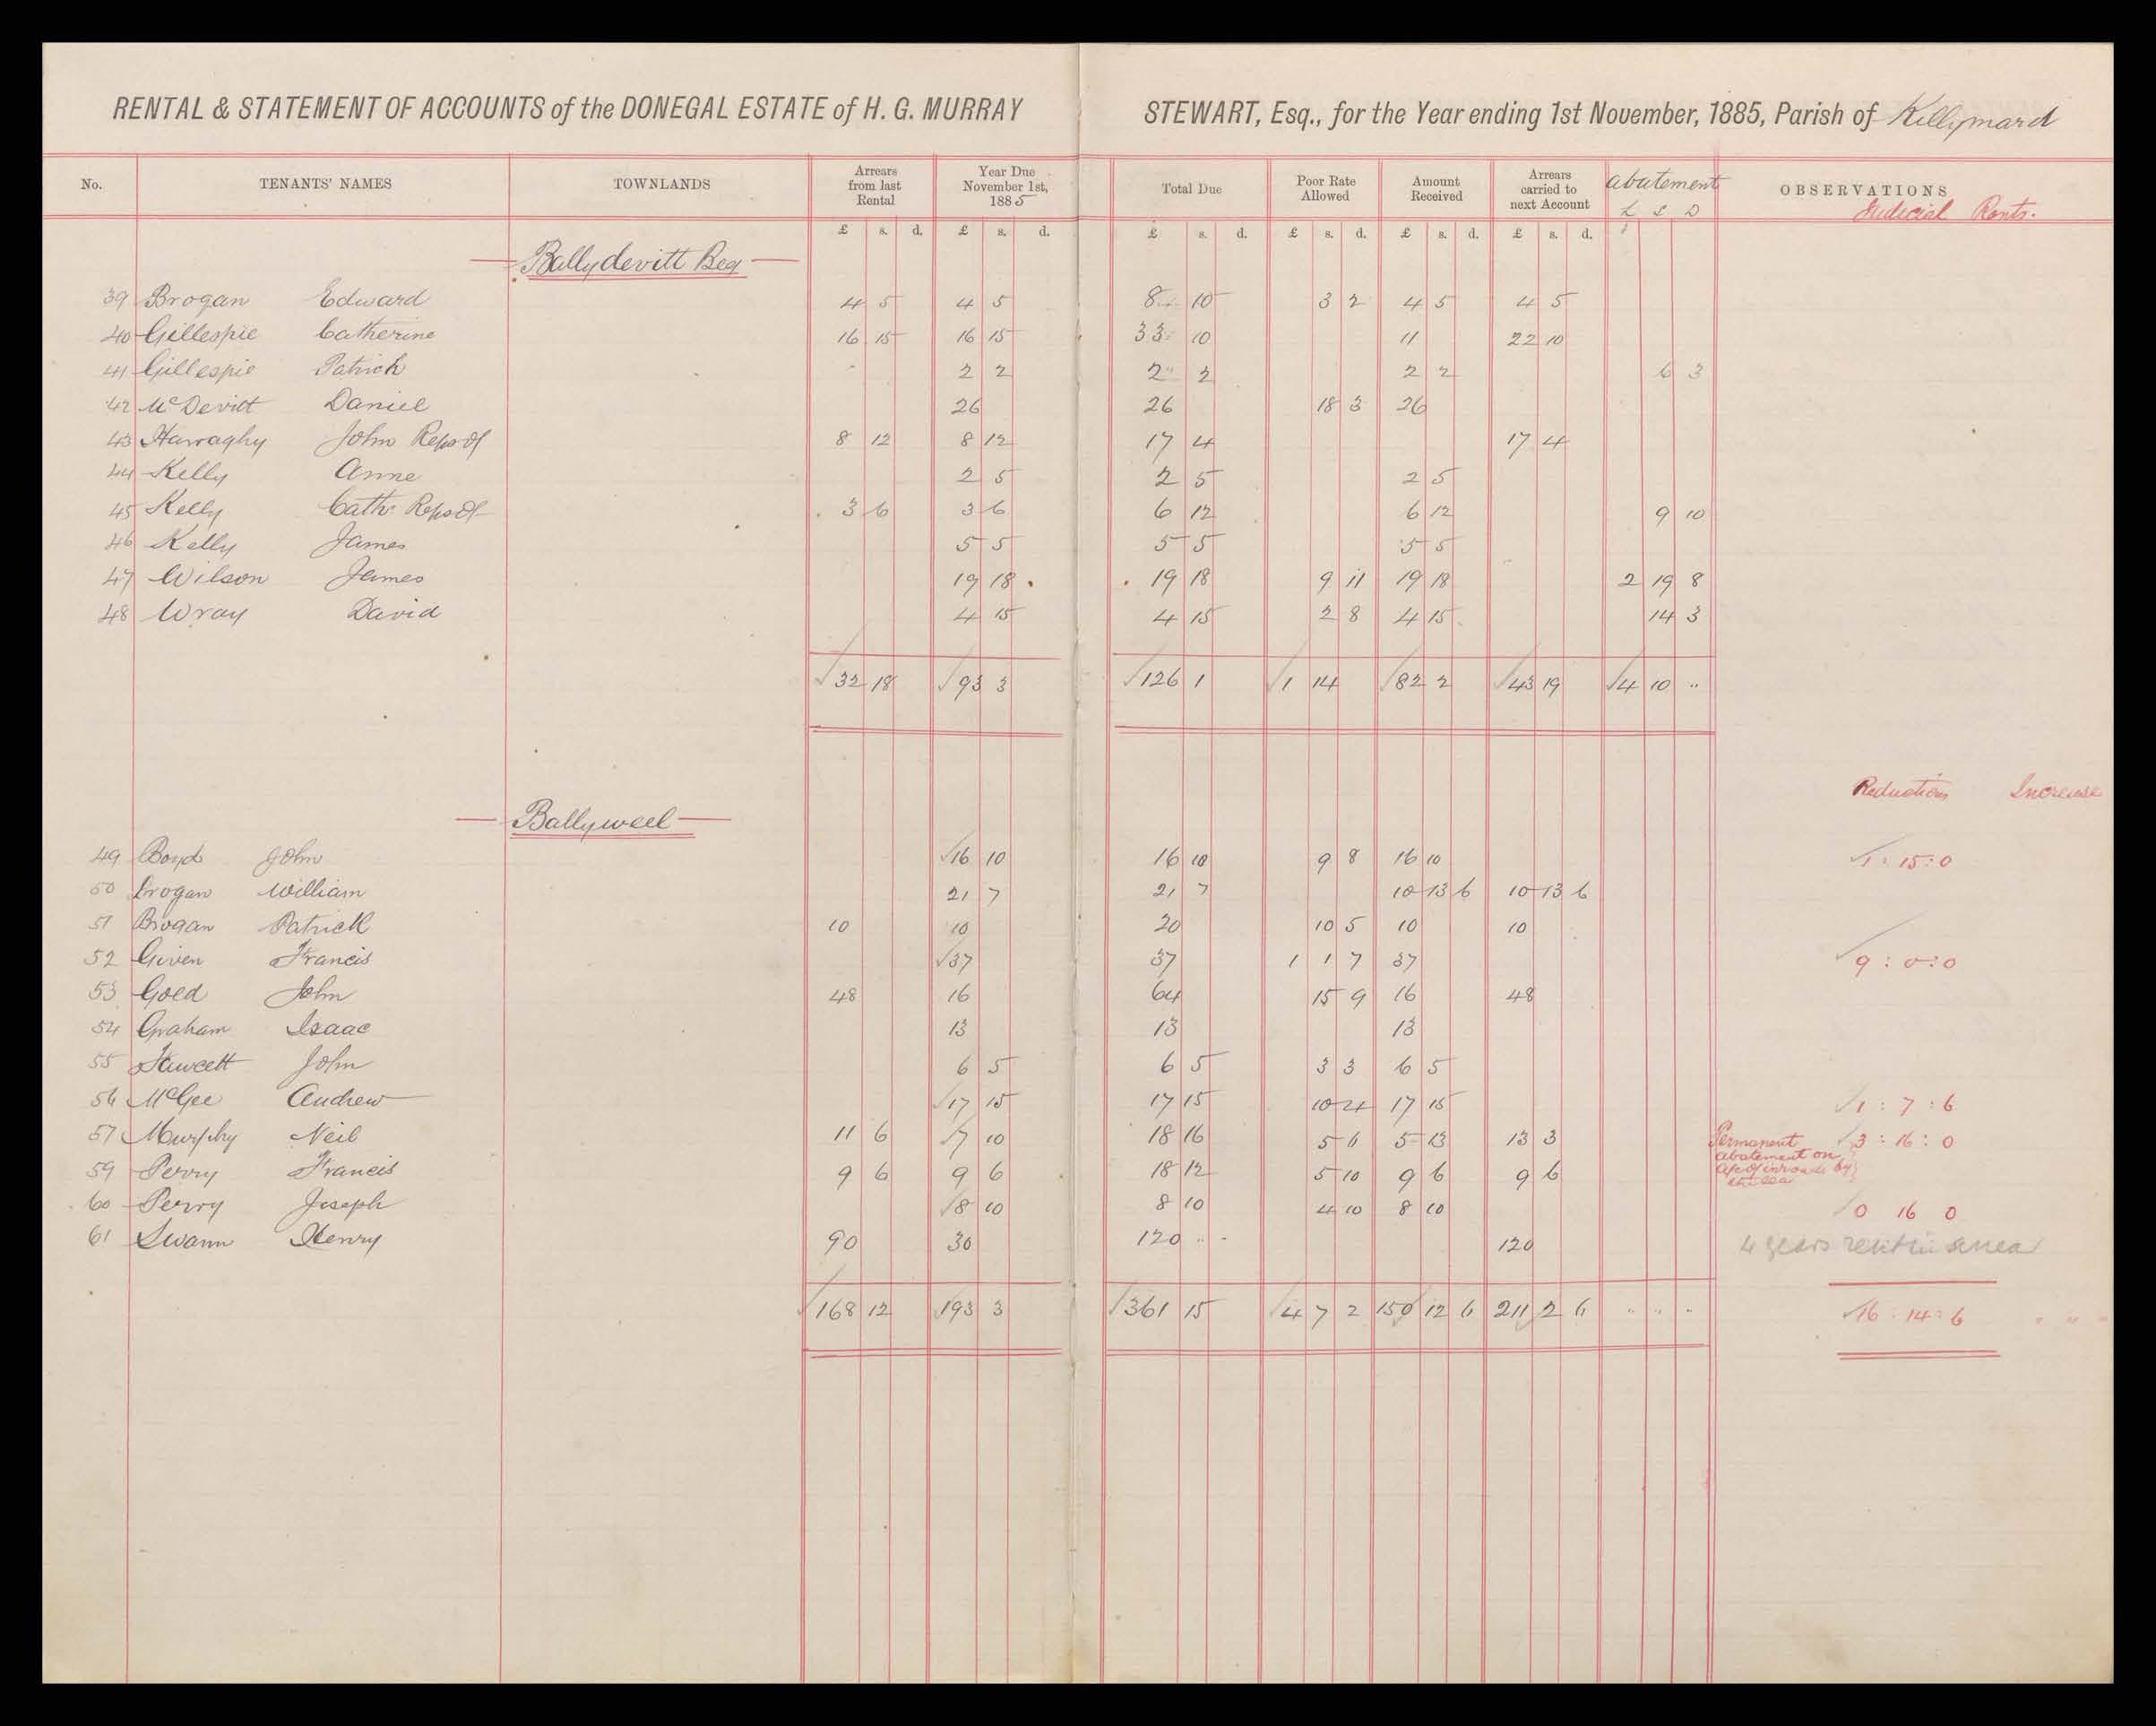 RENTAL & STATEMENT OF ACCOUNTS of the DONEGAL ESTATE of H. G. MURRAY STEWART, Esq., for the Year ending 1st November, 1885, Parish of Killymard
No. TENANTS' NAMES TOWNLANDS Arrears from last Rental Year Due November 1st, 1885 Total Due Poor Rate Allowed Amount Received Arrears carried to next Account Abatement £ S D OBSERVATIONS Judicial Rents.
£ s. d. £ s. d. £ s. d. £ s. d. £ s. d. £ s. d.
Ballydevitt Beg
39 Brogan Edward 4 5 4 5 8 10 3 2 4 5 4 5
40 Gillespie Catherine 16 15 16 15 33 10 11 22 10
41 Gillespie Patrick 2 2 2 2 2 2 6 3
42 McDevitt Daniel 26 26 18 3 26
43 Harraghy John Reps of 8 12 8 12 17 4 17 4
44 Kelly Anne 2 5 2 5 2 5
45 Kelly Cath: Reps of 3 6 3 6 6 12 6 12 9 10
46 Kelly James 5 5 5 5 5 5
47 Wilson James 19 18 19 18 9 11 19 18 2 19 8
48 Wray David 4 15 4 15 2 8 4 15 14 3
32 18 93 3 126 1 1 14 82 2 43 19 4 10 "
Reductions Increase
Ballyweel
49 Boyd John 16 10 16 10 9 8 16 10 1 : 15 : 0
50 Brogan William 21 7 21 7 10 13 6 10 13 6
51 Brogan Patrick 10 10 20 10 5 10 10
52 Given Francis 37 37 1 1 7 37 9 : 0 : 0
53 Goed John 48 16 64 15 9 16 48
54 Graham Isaac 13 13 13
55 Fawcett John 6 5 6 5 3 3 6 5
56 McGee Andrew 17 15 17 15 10 4 17 15 1 : 7 : 6
57 Murphy Neil 11 6 7 10 18 16 5 6 5 13 13 3 Permanent 3 : 16 : 0
abatement on
a/c of inroads by
the sea
59 Perry Francis 9 6 9 6 18 12 5 10 9 6 9 6
60 Perry Joseph 8 10 8 10 4 10 8 10 0 16 0
61 Swann Henry 90 30 120 " - 120 4 years rent in arrea
168 12 193 3 361 15 4 7 2 150 12 6 211 2 6 " " " 16 : 14 : 6 " " "